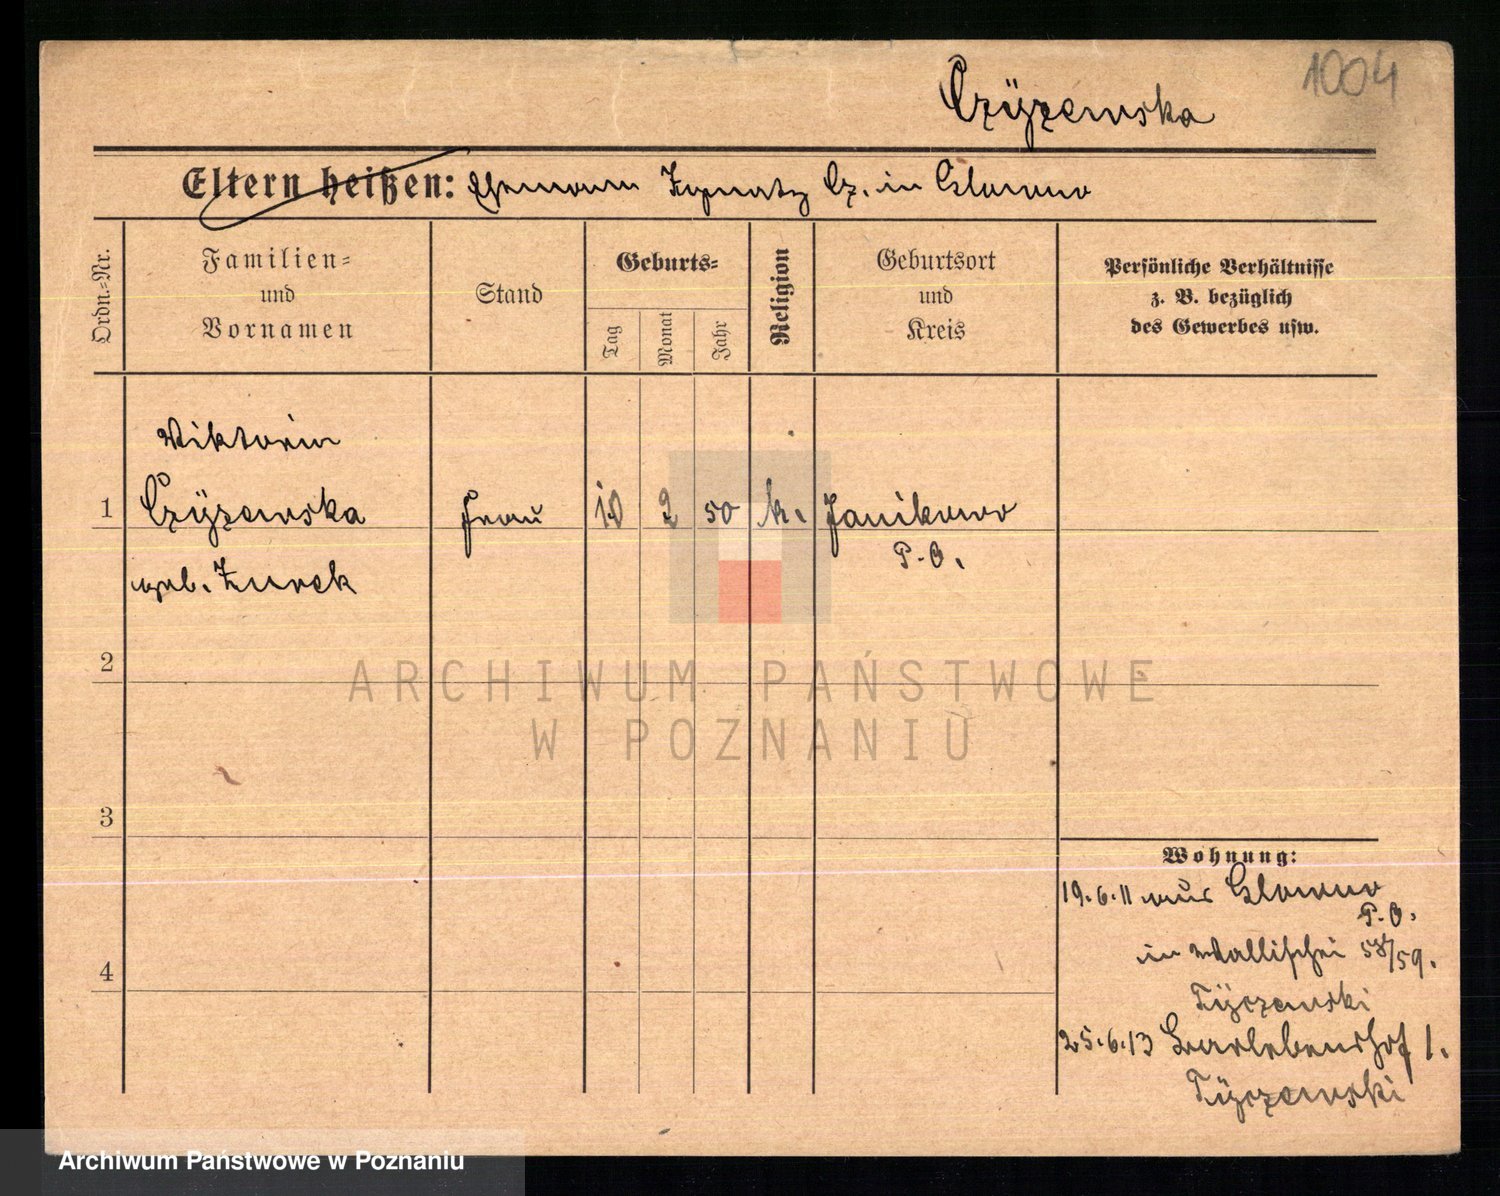 1004
Czÿzewska
Eltern heißen: Ehemann Ignatz Cz. in Glowno
Ordn.-Nr.
Familien- und Vornamen
Stand
Geburts-
Tag
Monat
Jahr
Religion
Geburtsort und Kreis
Persönliche Verhältnisse
z. B. bezüglich
des Gewerbes usw.
Viktoria
1 Czÿzewska Frau 10 2 50 k. Janikowo
P. O.
geb. Zurek
2
ARCHIWUM PAŃSTWOWE
W POZNANIU
3
Wohnung:
19.6.11 aus Glowno
P. O.
in Wallischei 58/59.
4
25.6.13
1.
Archiwum Państwowe w Poznaniu